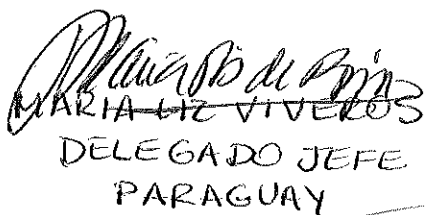 MARIA LIZ VIVEROS
DELEGADO JEFE
PARAGUAY